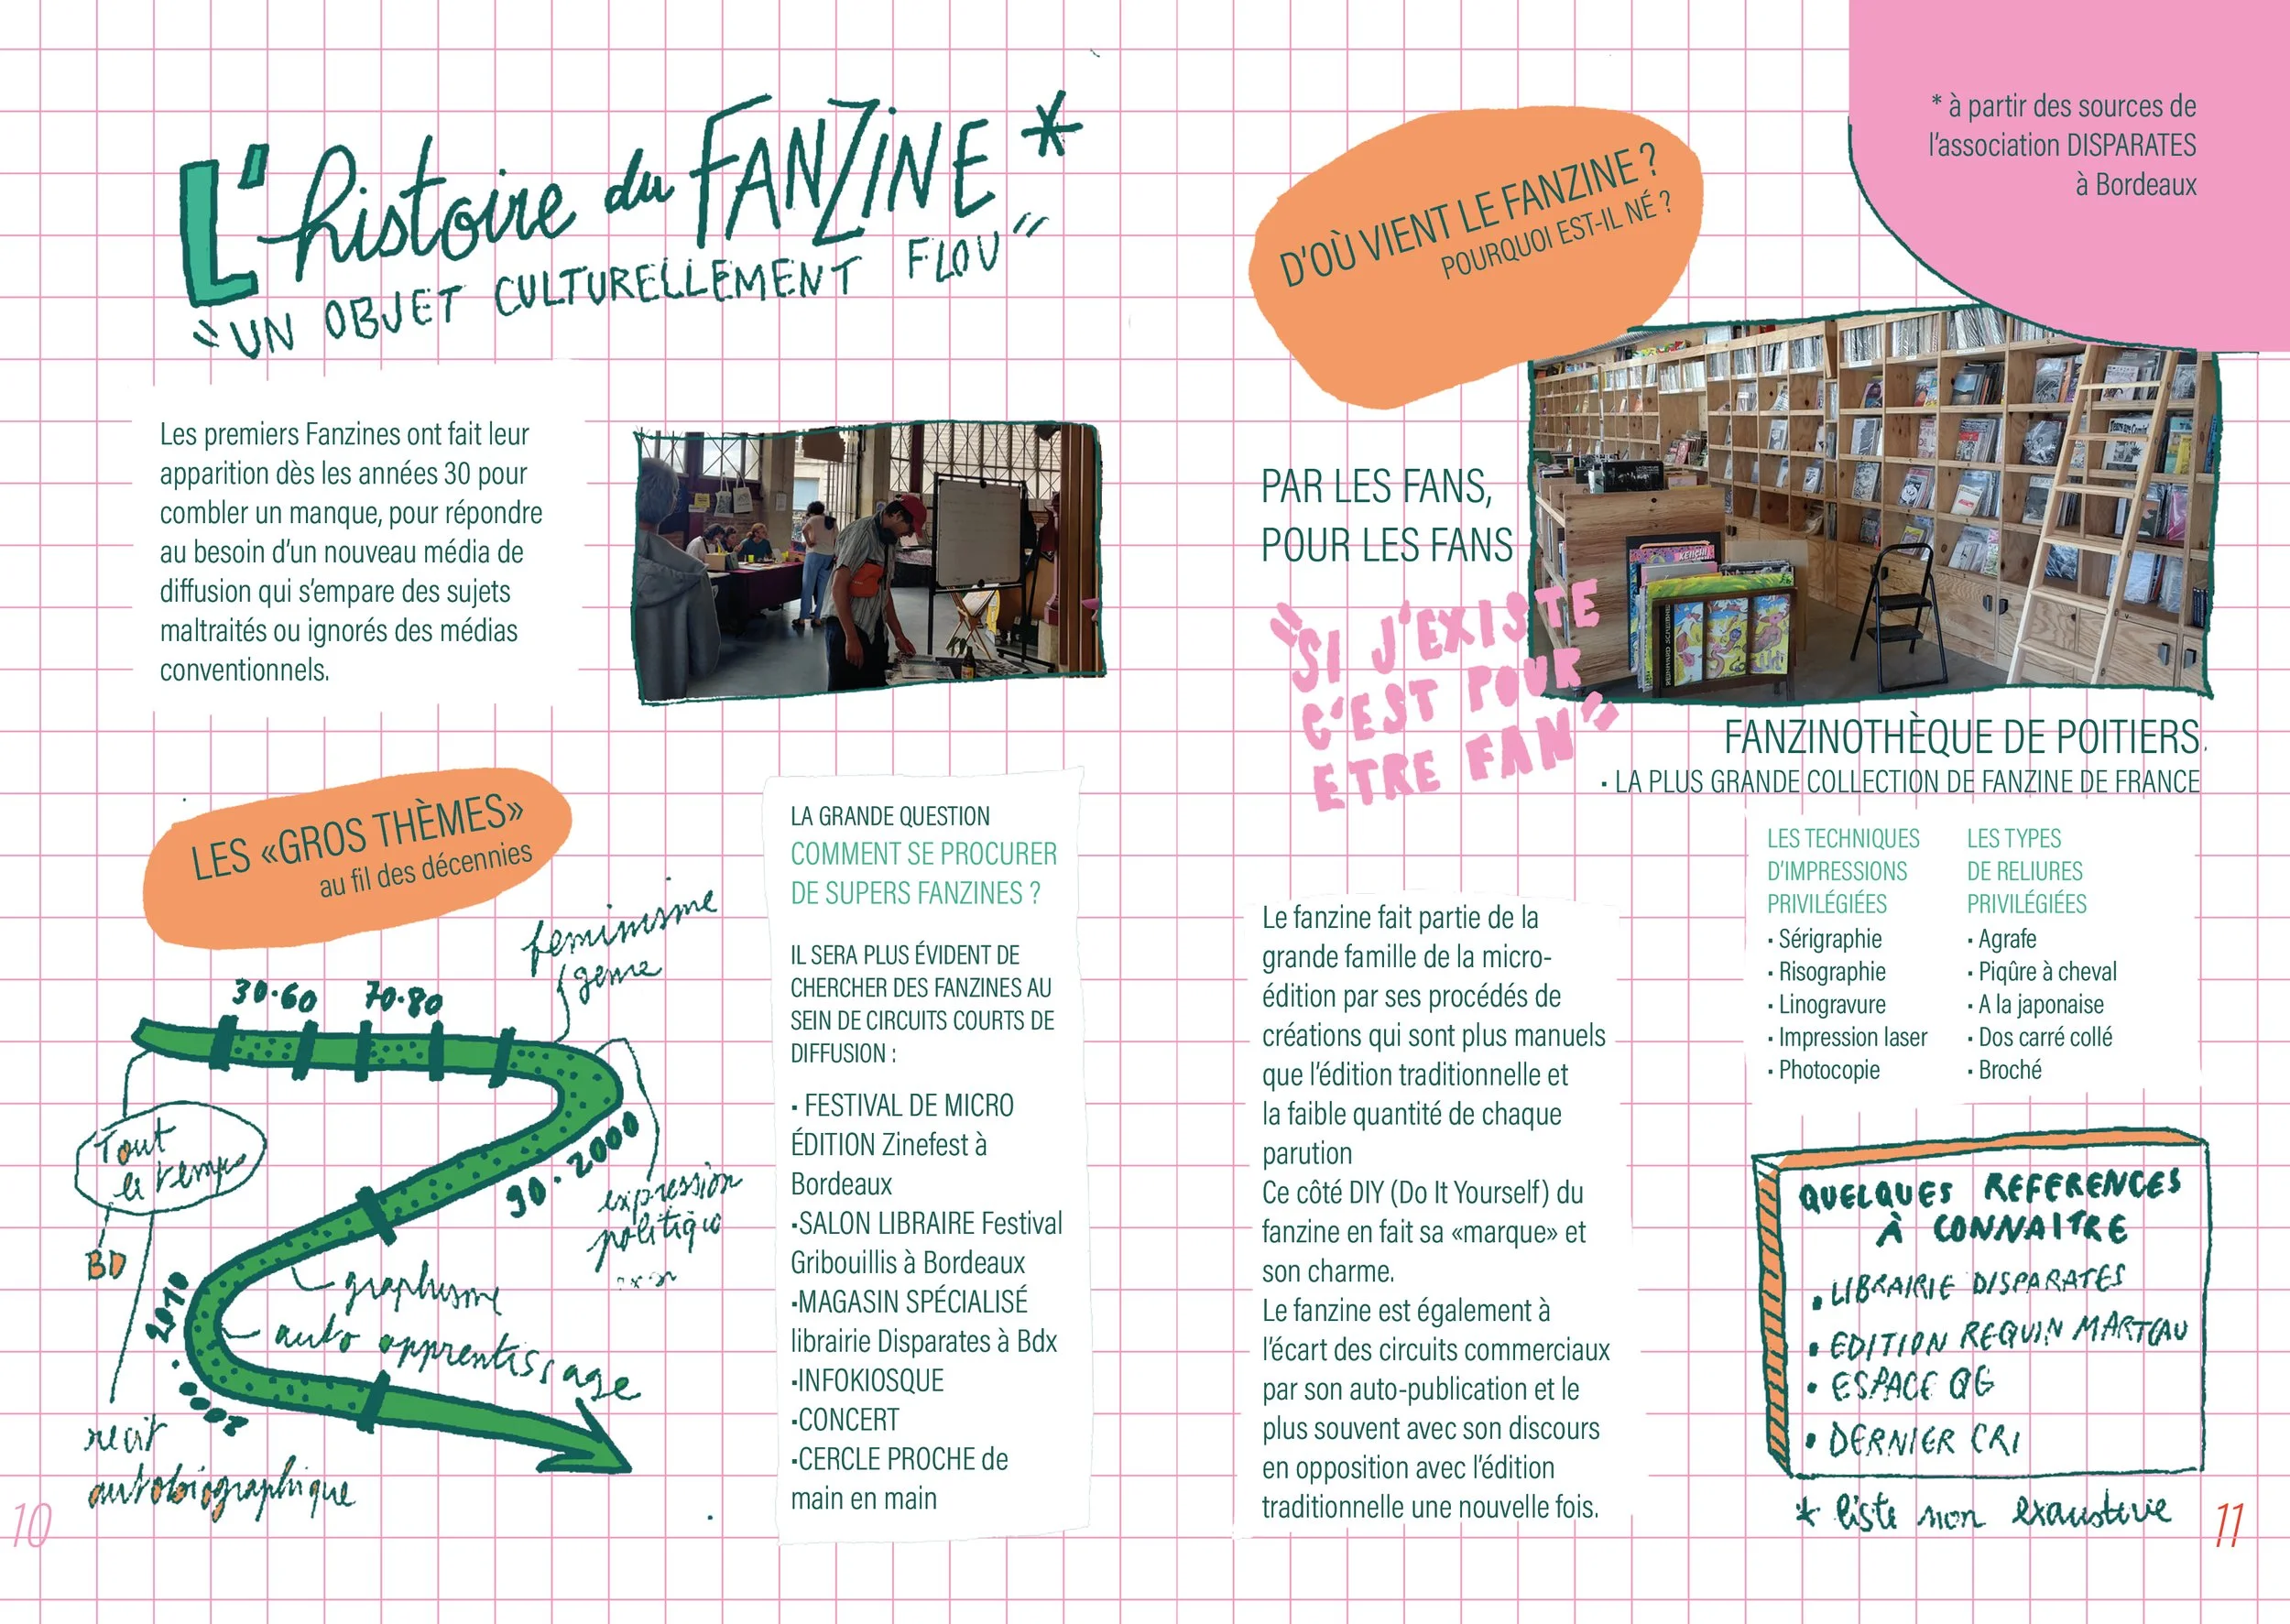 L'histoire du FANZiNE *
"UN OBJET CULTURELLEMENT FLOU"
Les premiers Fanzines ont fait leur
apparition dès les années 30 pour
combler un manque, pour répondre
au besoin d'un nouveau média de
diffusion qui s'empare des sujets
maltraités ou ignorés des médias
conventionnels.
LES «GROS THÈMES»
au fil des décennies
30·60
70·80
feminisme
genre
90·2000
expression
politique
Tout
le temps
BD
graphisme
auto apprentissage
2000·2010
recit
autobiographique
10
LA GRANDE QUESTION
COMMENT SE PROCURER
DE SUPERS FANZINES ?
IL SERA PLUS ÉVIDENT DE
CHERCHER DES FANZINES AU
SEIN DE CIRCUITS COURTS DE
DIFFUSION :
• FESTIVAL DE MICRO
ÉDITION Zinefest à
Bordeaux
•SALON LIBRAIRE Festival
Gribouillis à Bordeaux
•MAGASIN SPÉCIALISÉ
librairie Disparates à Bdx
•INFOKIOSQUE
•CONCERT
•CERCLE PROCHE de
main en main
D'OÙ VIENT LE FANZINE ?
POURQUOI EST-IL NÉ ?
* à partir des sources de
l'association DISPARATES
à Bordeaux
PAR LES FANS,
POUR LES FANS
"SI J'EXISTE
C'EST POUR
ETRE FAN"
FANZINOTHÈQUE DE POITIERS.
• LA PLUS GRANDE COLLECTION DE FANZINE DE FRANCE
Le fanzine fait partie de la
grande famille de la micro-
édition par ses procédés de
créations qui sont plus manuels
que l'édition traditionnelle et
la faible quantité de chaque
parution
Ce côté DIY (Do It Yourself) du
fanzine en fait sa «marque» et
son charme.
Le fanzine est également à
l'écart des circuits commerciaux
par son auto-publication et le
plus souvent avec son discours
en opposition avec l'édition
traditionnelle une nouvelle fois.
LES TECHNIQUES
D'IMPRESSIONS
PRIVILÉGIÉES
• Sérigraphie
• Risographie
• Linogravure
• Impression laser
• Photocopie
LES TYPES
DE RELIURES
PRIVILÉGIÉES
• Agrafe
• Piqûre à cheval
• A la japonaise
• Dos carré collé
• Broché
QUELQUES REFERENCES
À CONNAITRE
• LIBRAIRIE DISPARATES
• EDITION REQUIN MARTEAU
• ESPACE QG
• DERNIER CRI
* liste non exaustive
11